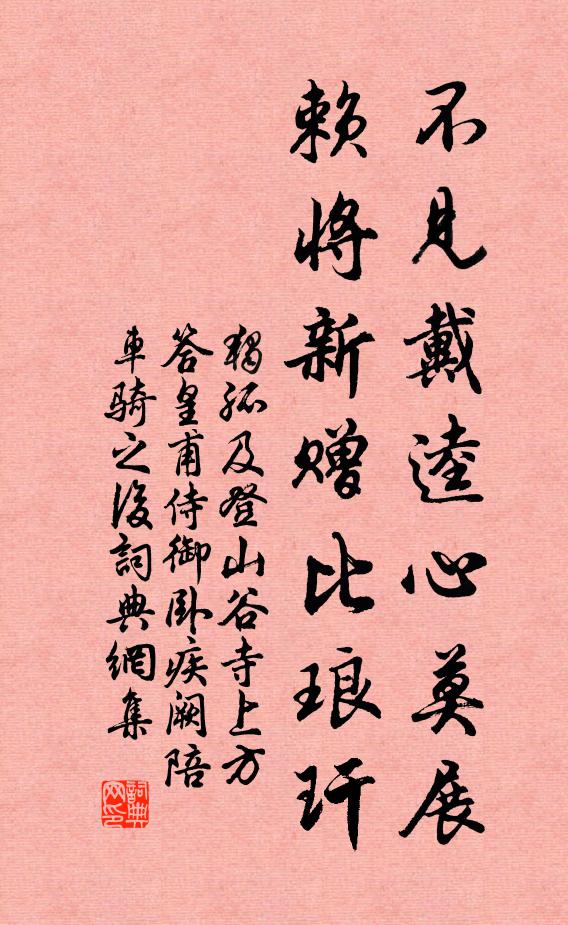 不見戴逵心莫展
賴將新贈比琅玕
獨孤及登山谷寺上方
答皇甫侍御卧疾阙陪
車騎之後詞典網集
詞典網印